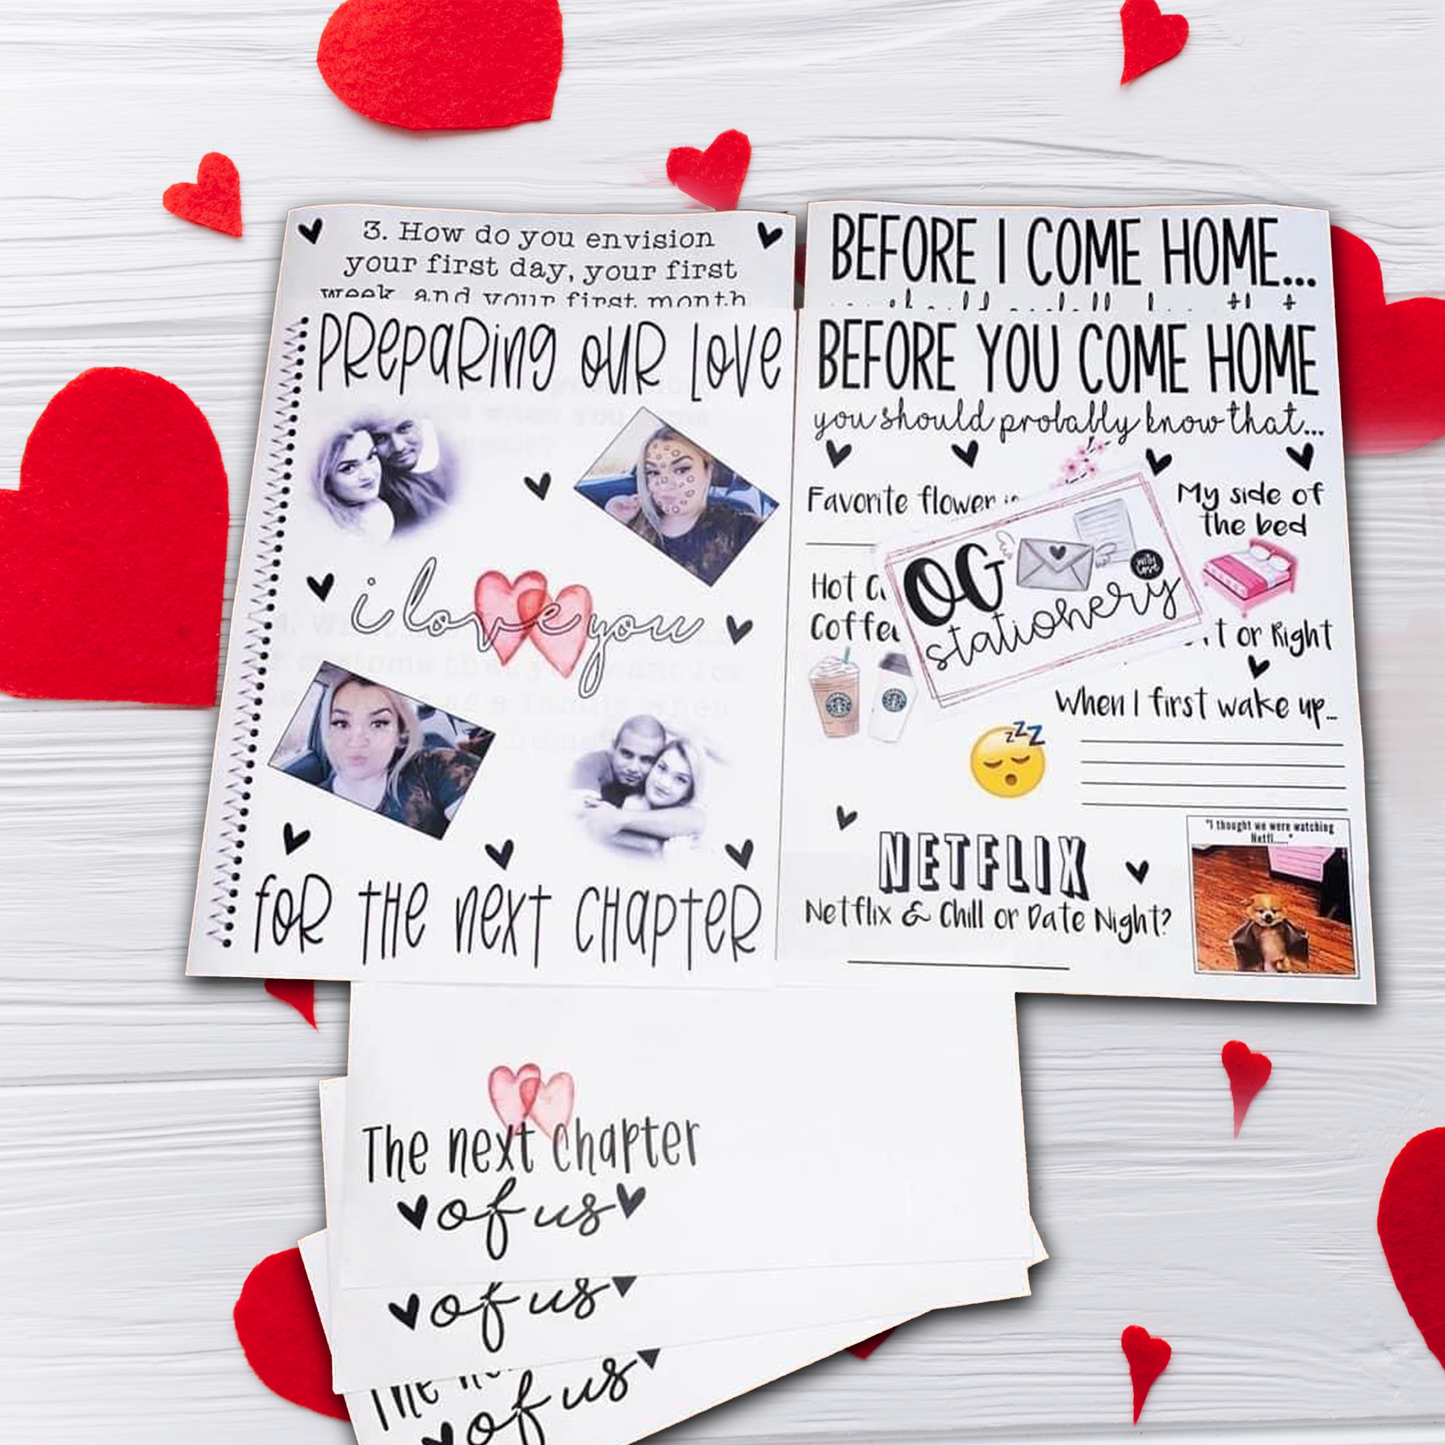 3. How do you envision
your first day, your first
week, and your first month
PREPARING OUR LOVE
i love you
FOR THE NEXT CHAPTER
BEFORE I COME HOME...
BEFORE YOU COME HOME
you should probably know that...
Favorite flower is
My side of
the bed
OG
stationery
with
love
Hot
Coffee
t or Right
When I first wake up...
zzz
NETFLIX
Netflix & Chill or Date Night?
"I thought we were watching
Netfl....."
The next chapter
of us
of us
The ne
of us